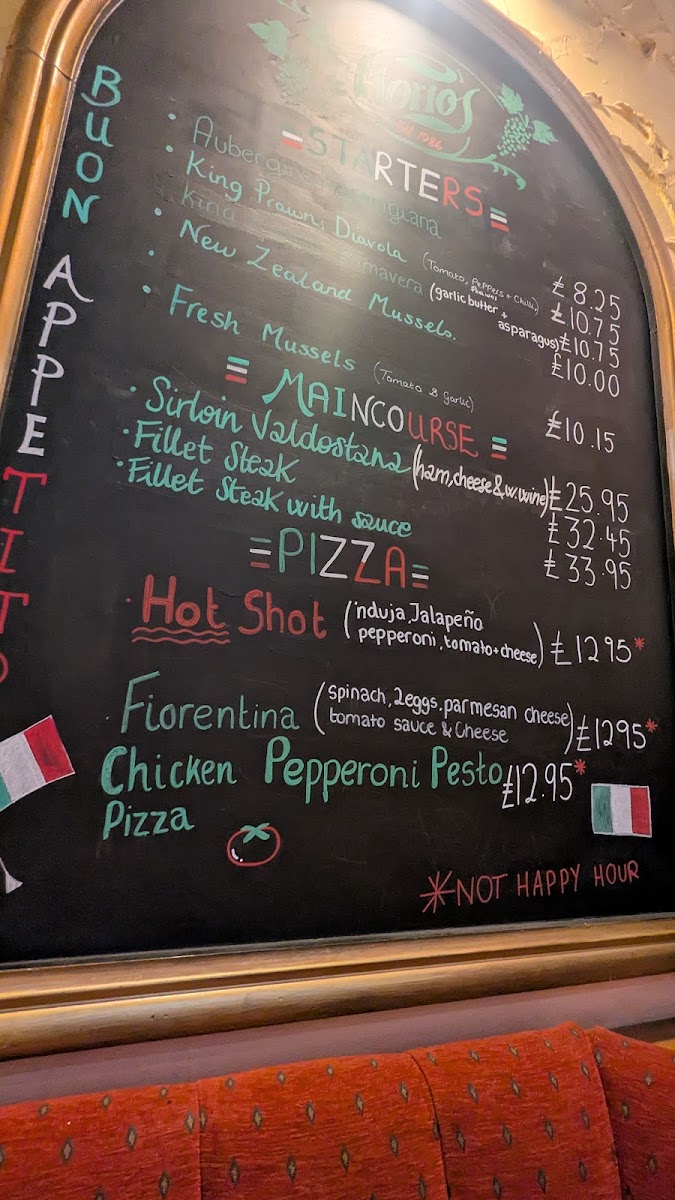 Florio's
Est 1986
STARTERS
BUON APPETITO
• Aubergine Parmigiana £8.25
• King Prawns Diavola (Tomato, Peppers + Chilli) £10.75
King Prawns Primavera (garlic butter + asparagus) £10.75
• New Zealand Mussels. £10.00
• Fresh Mussels (Tomato & Garlic) £10.15
MAINCOURSE
• Sirloin Valdostana (ham, cheese & w.wine) £25.95
• Fillet Steak £32.45
• Fillet Steak with sauce £33.95
PIZZA
• Hot Shot ('nduja, Jalapeño £1295*
pepperoni, tomato+cheese)
• Fiorentina (spinach, 2eggs. parmesan cheese £1295*
tomato sauce & Cheese)
Chicken Pepperoni Pesto £12.95*
Pizza
*NOT HAPPY HOUR